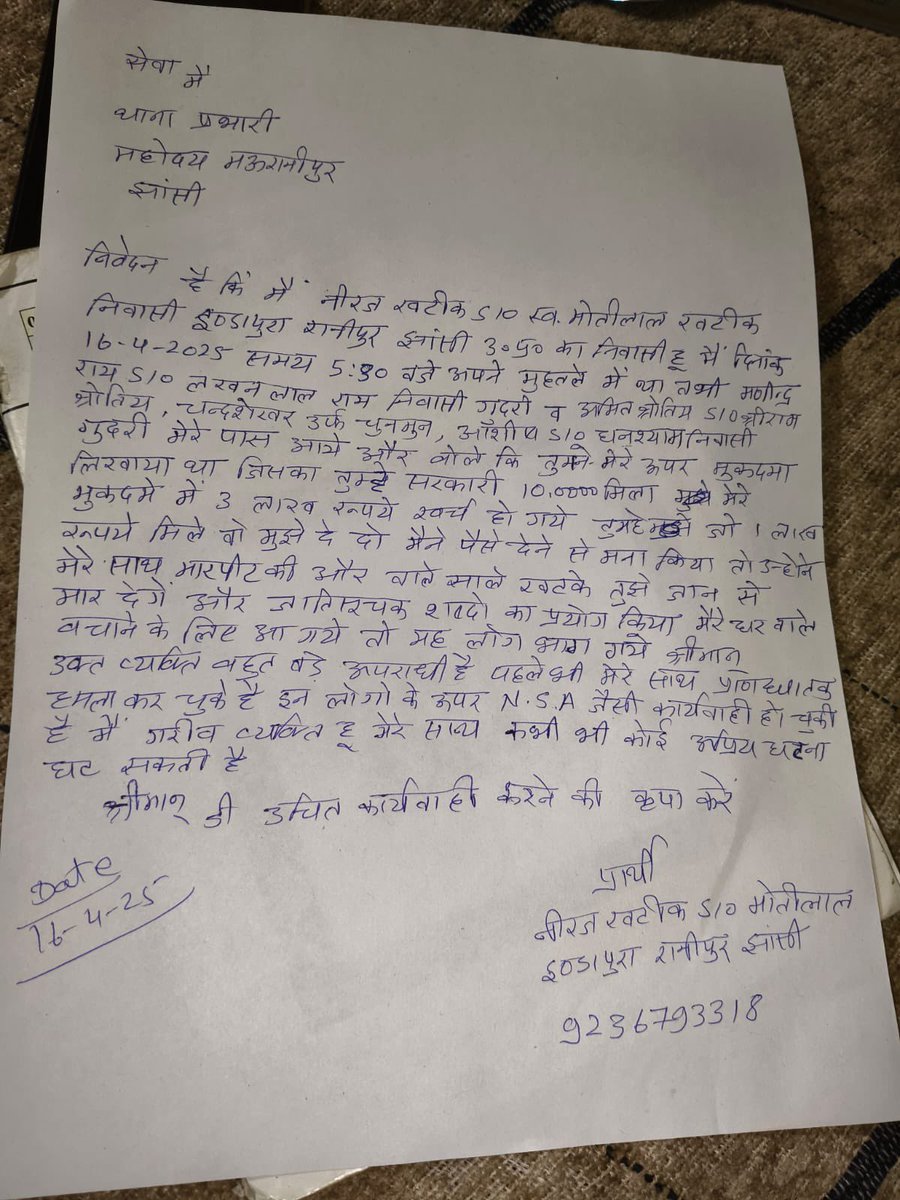 सेवा में
थाना प्रभारी
महोदय मऊरानीपुर
झांसी
निवेदन है कि मैं नीरज खटीक S/O स्व. मोतीलाल खटीक
निवासी इण्डापुरा रानीपुर झांसी उ०प्र० का निवासी हू मैं दिनांक
16-4-2025 समय 5:30 बजे अपने मुहल्ले में था तभी मणीन्द्र
राय S/O लखन लाल राय निवासी गुदरी व अमित श्रोतिय S/O श्रीराम
श्रोतिय, चन्द्रशेखर उर्फ चुनमुन, आशीष S/O घनश्याम निवासी
गुदरी मेरे पास आये और बोले कि तुमने मेरे ऊपर मुकदमा
लिखाया था जिसका तुम्हे सरकारी 10.0000 मिला मेरे
मुकदमे में 3 लाख रूपये खर्च हो गये तुमहे जो 1 लाख
रूपये मिले वो मुझे दे दो मैने पैसे देने से मना किया तो उन्होने
मेरे साथ मारपीट की और वाले साले खटके तुझे जान से
मार देगें और जातिसूचक शब्दो का प्रयोग किया मेरे घर वाले
बचाने के लिए आ गये तो यह लोग भाग गये श्रीमान
उक्त व्यक्ति बहुत बड़े अपराधी है पहले भी मेरे साथ प्राणघातक
हमला कर चुके है इन लोगो के ऊपर N.S.A जैसी कार्यवाही हो चुकी
है मैं गरीब व्यक्ति हू मेरे साथ कभी भी कोई अप्रिय घटना
घट सकती है
श्रीमान् जी उचित कार्यवाही करने की कृपा करें
Date
16-4-25
प्रार्थी
नीरज खटीक S/O मोतीलाल
इण्डापुरा रानीपुर झांसी
9236793318